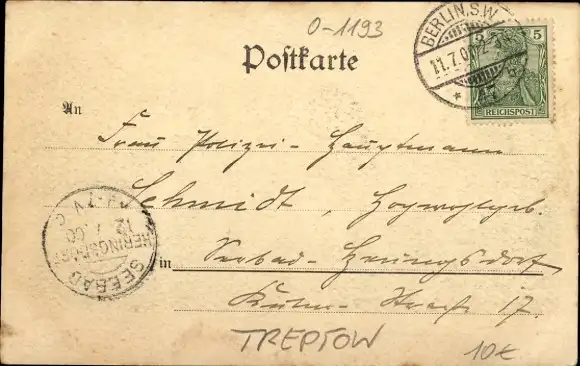 O-1193
Postkarte
BERLIN, S.W.
11.7.00
5
REICHSPOST
An
Frau Polizei-Hauptmann
Schmidt,
in Seebad-Heringsdorf
Straße 17.
SEEBAD HERINGSDORF
12 7 00
TREPTOW
10€